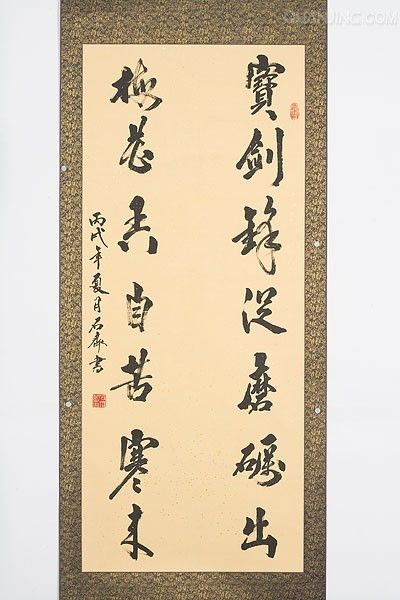 寶劍鋒從磨礪出
梅花香自苦寒來
丙戌年夏月石齋書